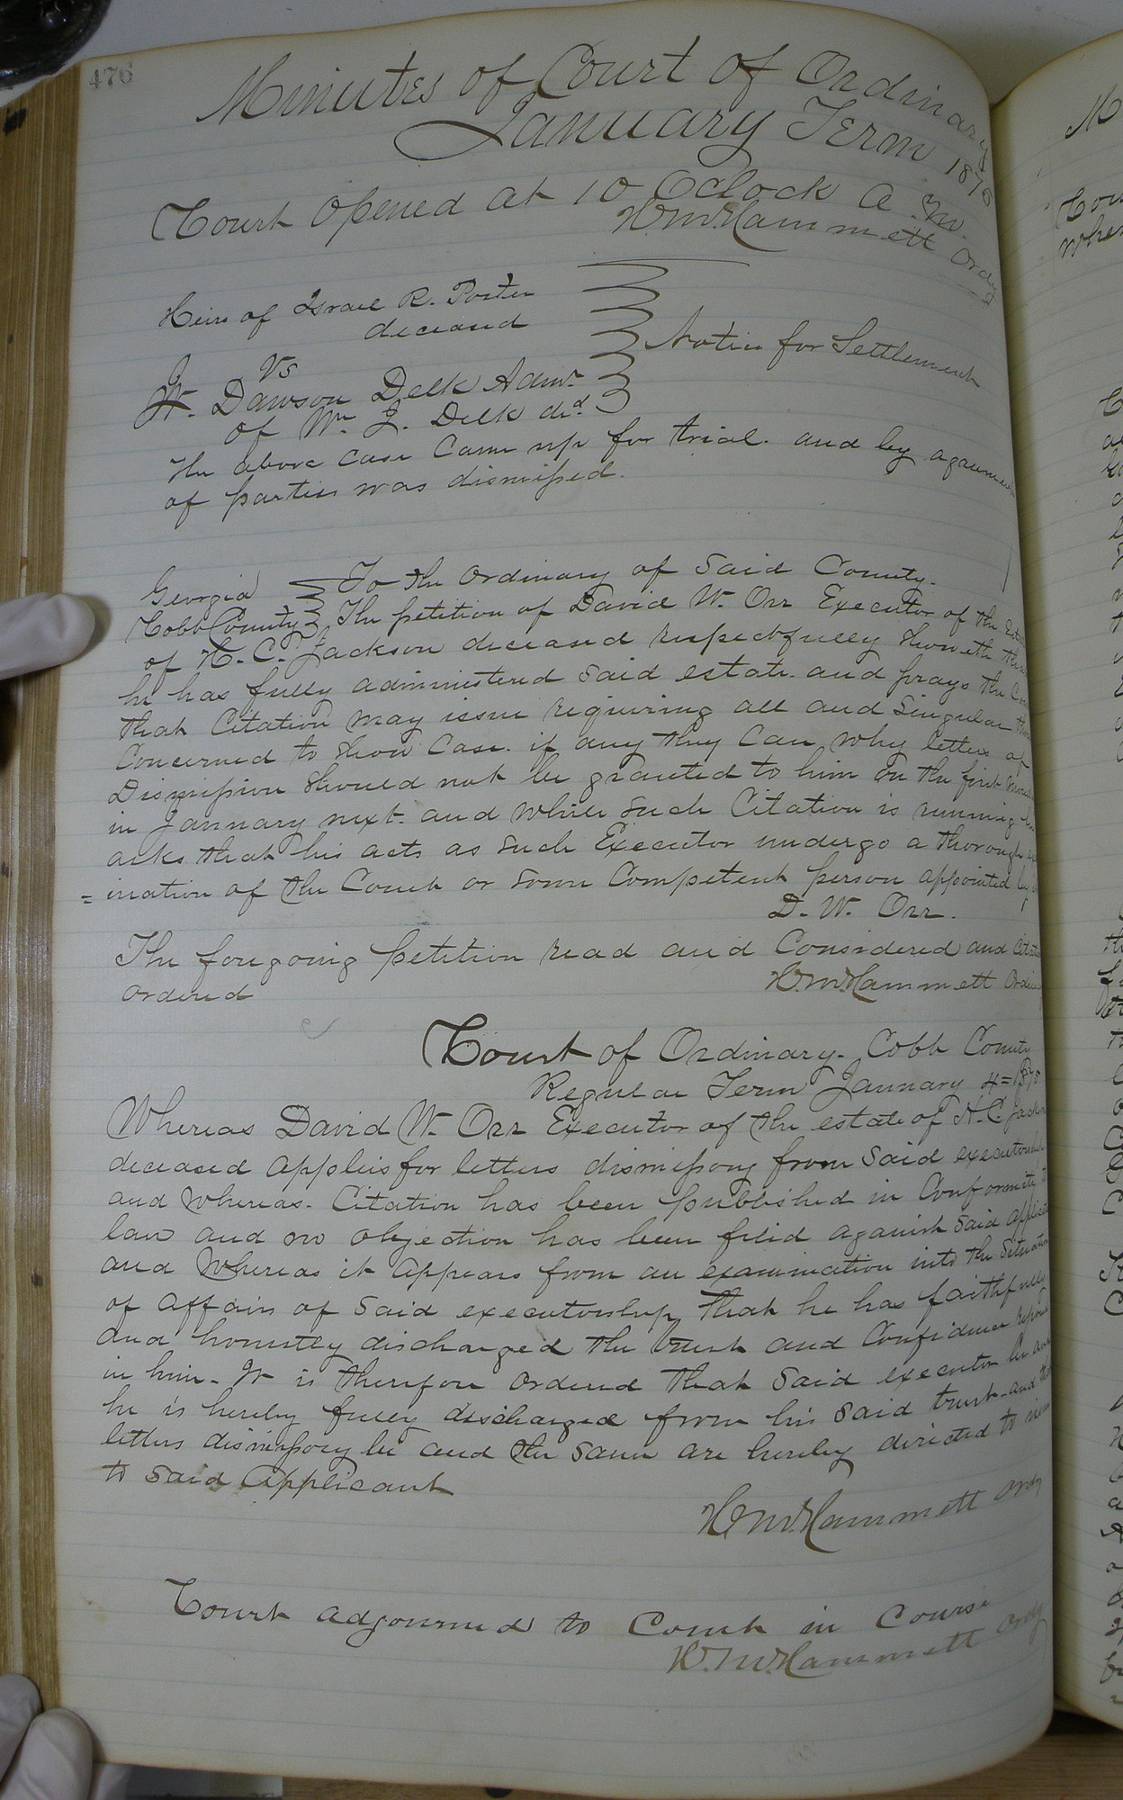 476
Minutes of Court of Ordinary
January Term 1876
Court Opened at 10 Oclock A. M.
H. M. Hammett Ordy
Heirs of Israel R. Foster
deceased
Vs
J
W. Dawson Delk Admr
of Wm J. Delk decd
Notice for Settlement
The above case Came up for trial. and by agreement
of parties was dismissed.
Georgia
Cobb County
To the Ordinary of Said County.
The petition of David W. Orr Executor of the
of H. C. Jackson deceased respectfully Showeth that
he has fully administered Said estate. and prays the
that Citation may issue requiring all and Singular
Concerned to Show Case. if any they Can why letters of
Dismission Should not be granted to him on the first
in January next. and while Such Citation is running he
asks that his acts as Such Executor undergo a thorough
=ination of the Court or Some Competent person appointed by
D. W. Orr.
The foregoing petition read and Considered and
Ordered
H. M. Hammett
Court of Ordinary. Cobb County
Regular Term January 4=
Whereas David W. Orr Executor of the estate of H. C.
deceased applies for letters dismissory from Said
and whereas. Citation has been published in Conformity to
law and no objection has been filed against Said
and Whereas it Appears from an examination into the
of Affairs of Said executorship, that he has faithfully
and honestly discharged the trust and Confidence
in him. It is therefore ordered that Said executor be and
he is hereby fully discharged from his Said trust. and that
letters dismissory be and the Same are hereby directed to
to Said Applicant
H. M. Hammett Ordy
Court adjourned to Court in Course
H. M. Hammett Ordy